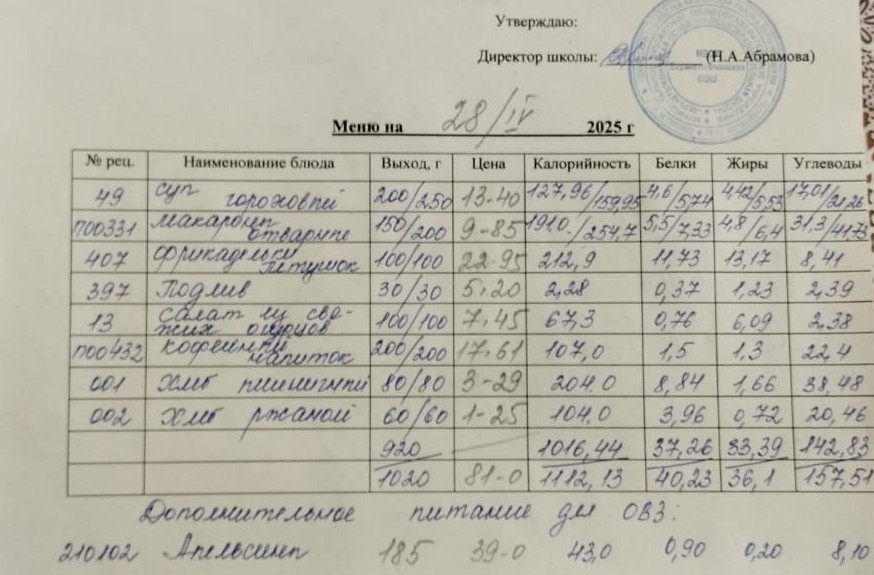 Утверждаю:
Директор школы: (Н.А.Абрамова)
Меню на 28/IV 2025 г
№ рец. Наименование блюда Выход, г Цена Калорийность Белки Жиры Углеводы
49 суп гороховый 200/250 13-40 127,96/159,95 4,6/5,74 4,42/5,53 17,01/21,26
п00331 макароны отварные 150/200 9-85 191,0/254,7 5,5/7,33 4,8/6,4 31,3/41,73
407 фрикадельки петушок 100/100 22-95 212,9 11,73 13,17 8,41
397 Подлив 30/30 5-20 2,28 0,37 1,23 2,39
13 Салат из све-
жих огурцов 100/100 7-45 67,3 0,76 6,09 2,38
п00432 кофейный напиток 200/200 17-61 107,0 1,5 1,3 22,4
001 Хлеб пшеничный 80/80 3-29 204.0 8,84 1,66 38,48
002 Хлеб ржаной 60/60 1-25 104.0 3,96 0,72 20,46
920 1016,44 37,26 33,39 142,83
1020 81-0 1112,13 40,23 36,1 157,51
Дополнительное питание для ОВЗ:
210102 Апельсины 185 39-0 43,0 0,90 0,20 8,10